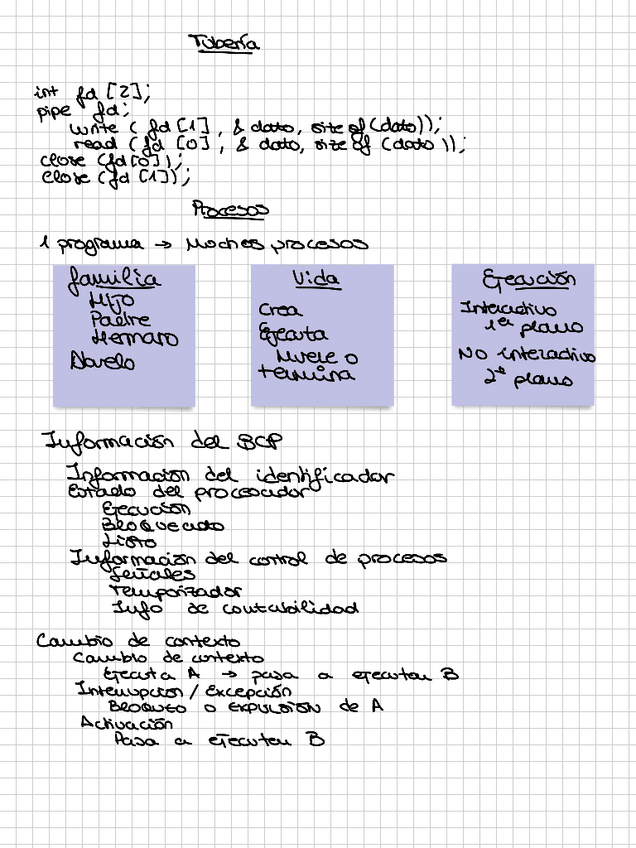 Tubería
int fd [2];
pipe fd;
write ( fd [1] , & dato, size of (dato));
read ( fd [0] , & dato, size of (dato ));
close (fd[0]);
close (fd [1]);
Procesos
1 programa → Muchos procesos
familia
Hijo
Padre
Hermano
Abuelo
Vida
Crea
Ejecuta
Muere o
termina
Ejecución
Interactivo
1er plano
No interactivo
2º plano
Información del BCP
Información del identificador
Estado del procesador
Ejecución
Bloqueado
Listo
Información del control de procesos
Señales
Temporizador
Info de contabilidad
Cambio de contexto
Cambio de contexto
Ejecuta A → pasa a ejecutar B
Interrupción / Excepción
Bloqueo o expulsión de A
Activación
Pasa a ejecutar B